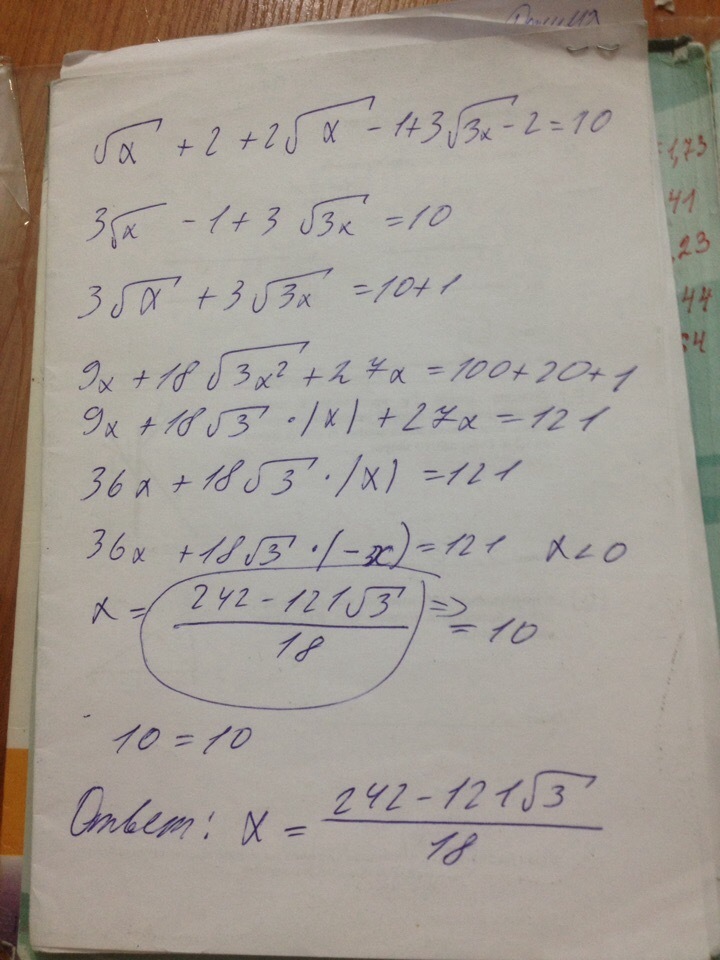 √x + 2 + 2√x - 1 + 3√3x - 2 = 10
3√x - 1 + 3 √3x = 10
3√x + 3√3x = 10+1
9x + 18√3x² + 27x = 100+20+1
9x + 18√3 · |x| + 27x = 121
36x + 18√3 · |x| = 121
36x + 18√3 · (-x) = 121 x<0
x = (242 - 121√3)/18 => = 10
10 = 10
Ответ: x = (242 - 121√3)/18
=1,73
41
,23
44